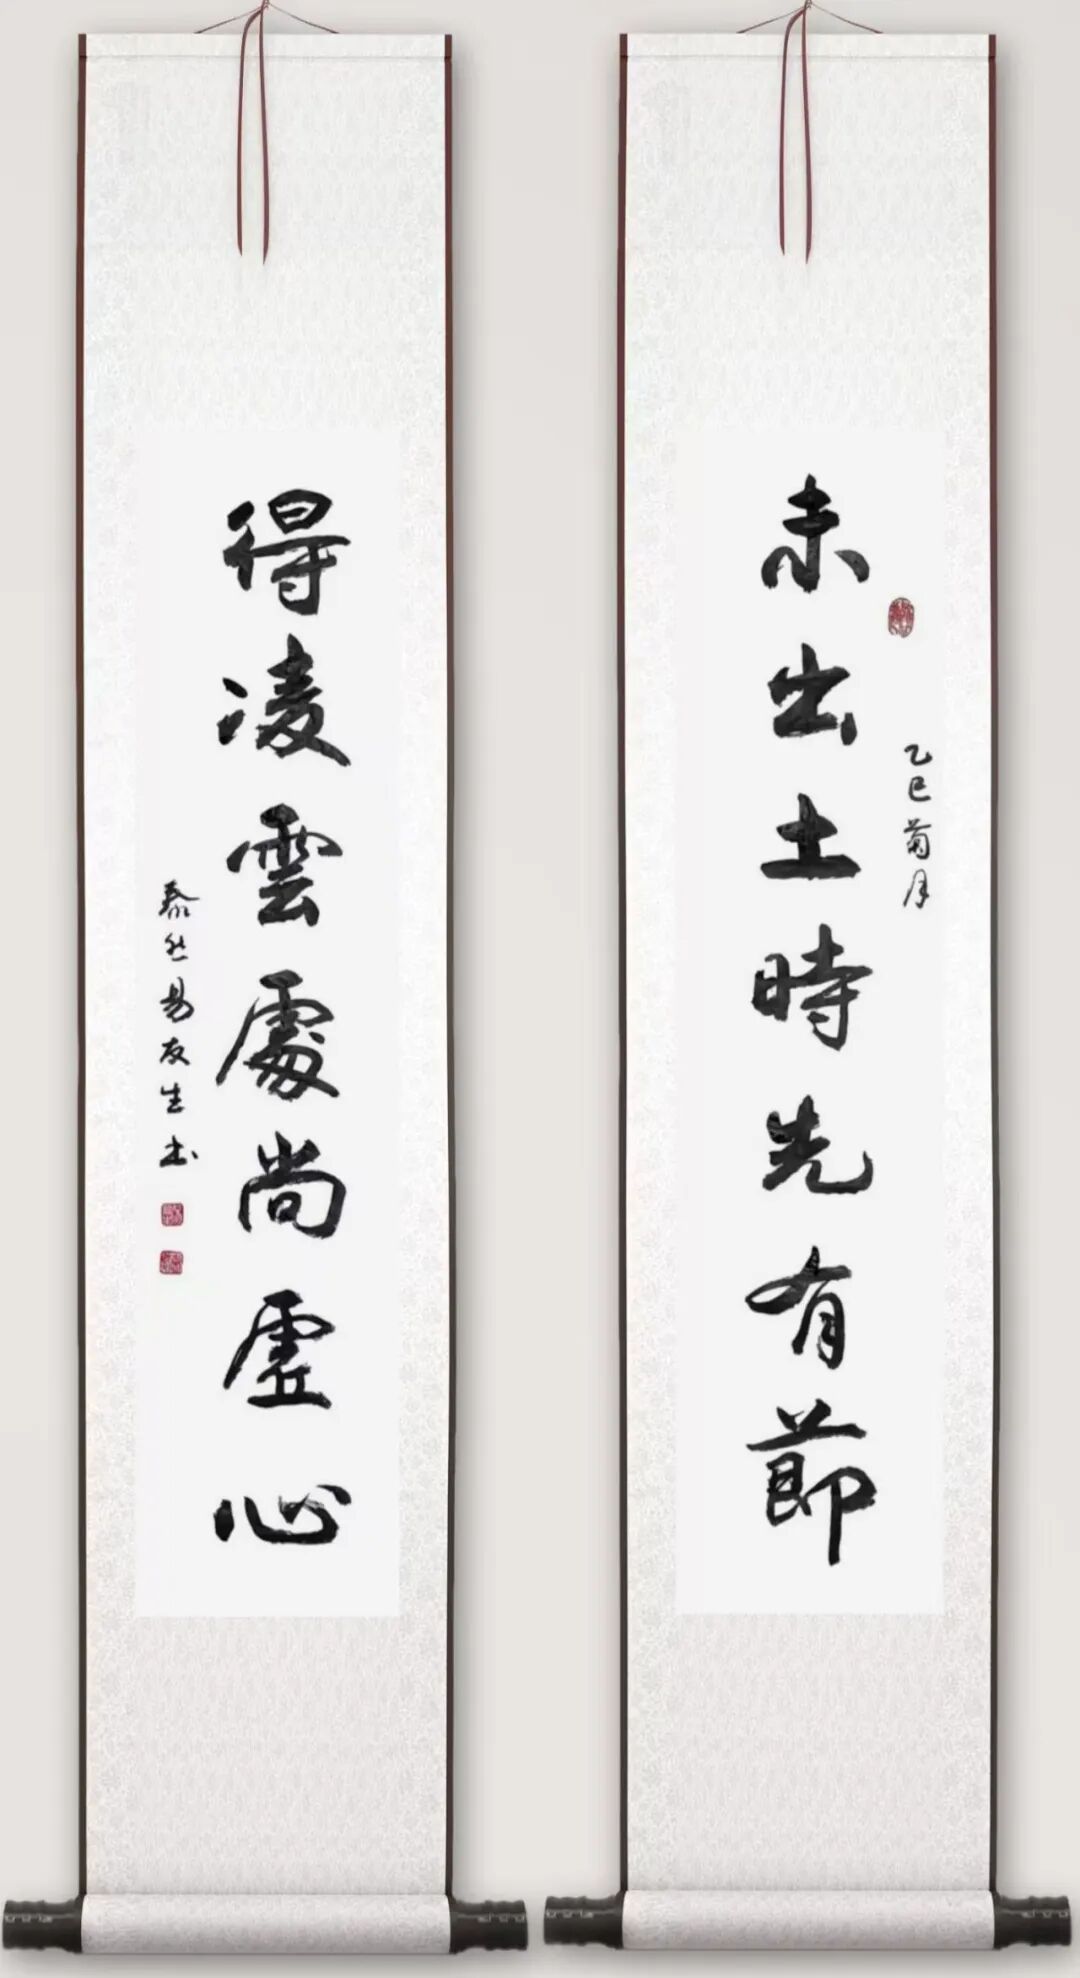 未出土時先有節
乙巳菊月
得凌雲處尚虛心
泰然易友生书